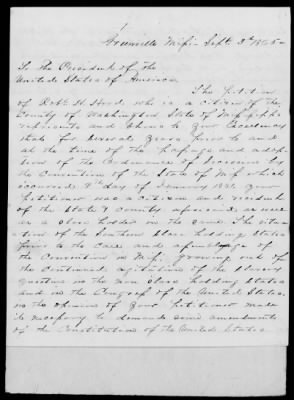 Greenville Missi. Sept. 3d 1865
To the President of the
United States of America.
The Petition
of Robt. H. Hord who is a citizen of the
County of Washington State of Missippi
represents and shows to Your Excellency
that for several years prior to and
at the time of the passage and adop
tion of the Ordinance of Secession by
the Convention of the State of Mi which
occurred 9th day of January 1861. Your
Petitioner was a citizen and resident
of the State & County aforesaid, as well
as a slave holder in the same. The situ
ation of the Southern slave holding states
prior to the call and assemblage of
the Convention in Mi. growing out of
the continued agitation of the slavery
question in the non slave holding states
and in the Congress of the United States,
in the opinion of your Petitioner made
it necessary to demand some amendments
of the Constitution of the United States